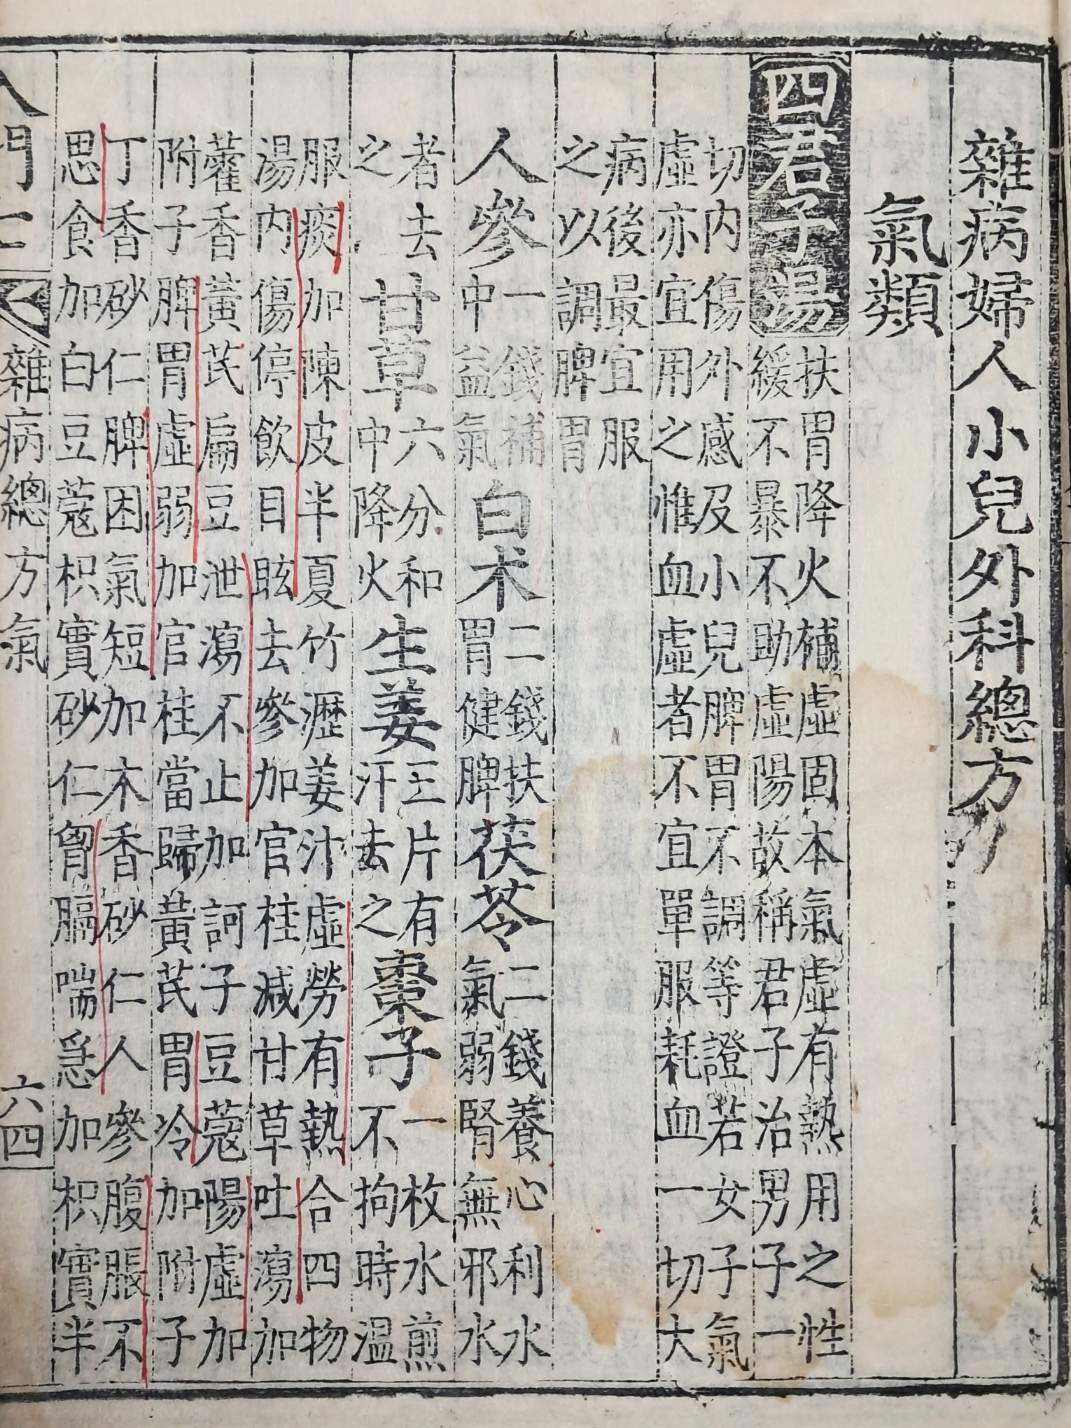 雜病婦人小兒外科總方
氣類
四君子湯
扶胃降火補虛固本氣虛有熱用之性
緩不暴不助虛陽故稱君子治男子一
切內傷外感及小兒脾胃不調等證若女子氣
虛亦宜用之惟血虛者不宜單服耗血一切大
病後最宜服
之以調脾胃
人參
一錢補
中益氣
白朮
二錢扶
胃健脾
茯苓
二錢養心利水
氣弱腎無邪水
者去
之
甘草
六分和
中降火
生姜
三片有
汗去之
棗子
一枚水煎
不拘時温
服痰加陳皮半夏竹瀝姜汁虛勞有熱合四物
湯內傷停飲目眩去參加官桂減甘草吐瀉加
藿香黃芪扁豆泄瀉不止加訶子豆蔻腸虛加
附子脾胃虛弱加官桂當歸黃芪胃冷加附子
丁香砂仁脾困氣短加木香砂仁人參腹脹不
思食加白豆蔻枳實砂仁胷膈喘急加枳實半
入門 雜病總方氣 六四